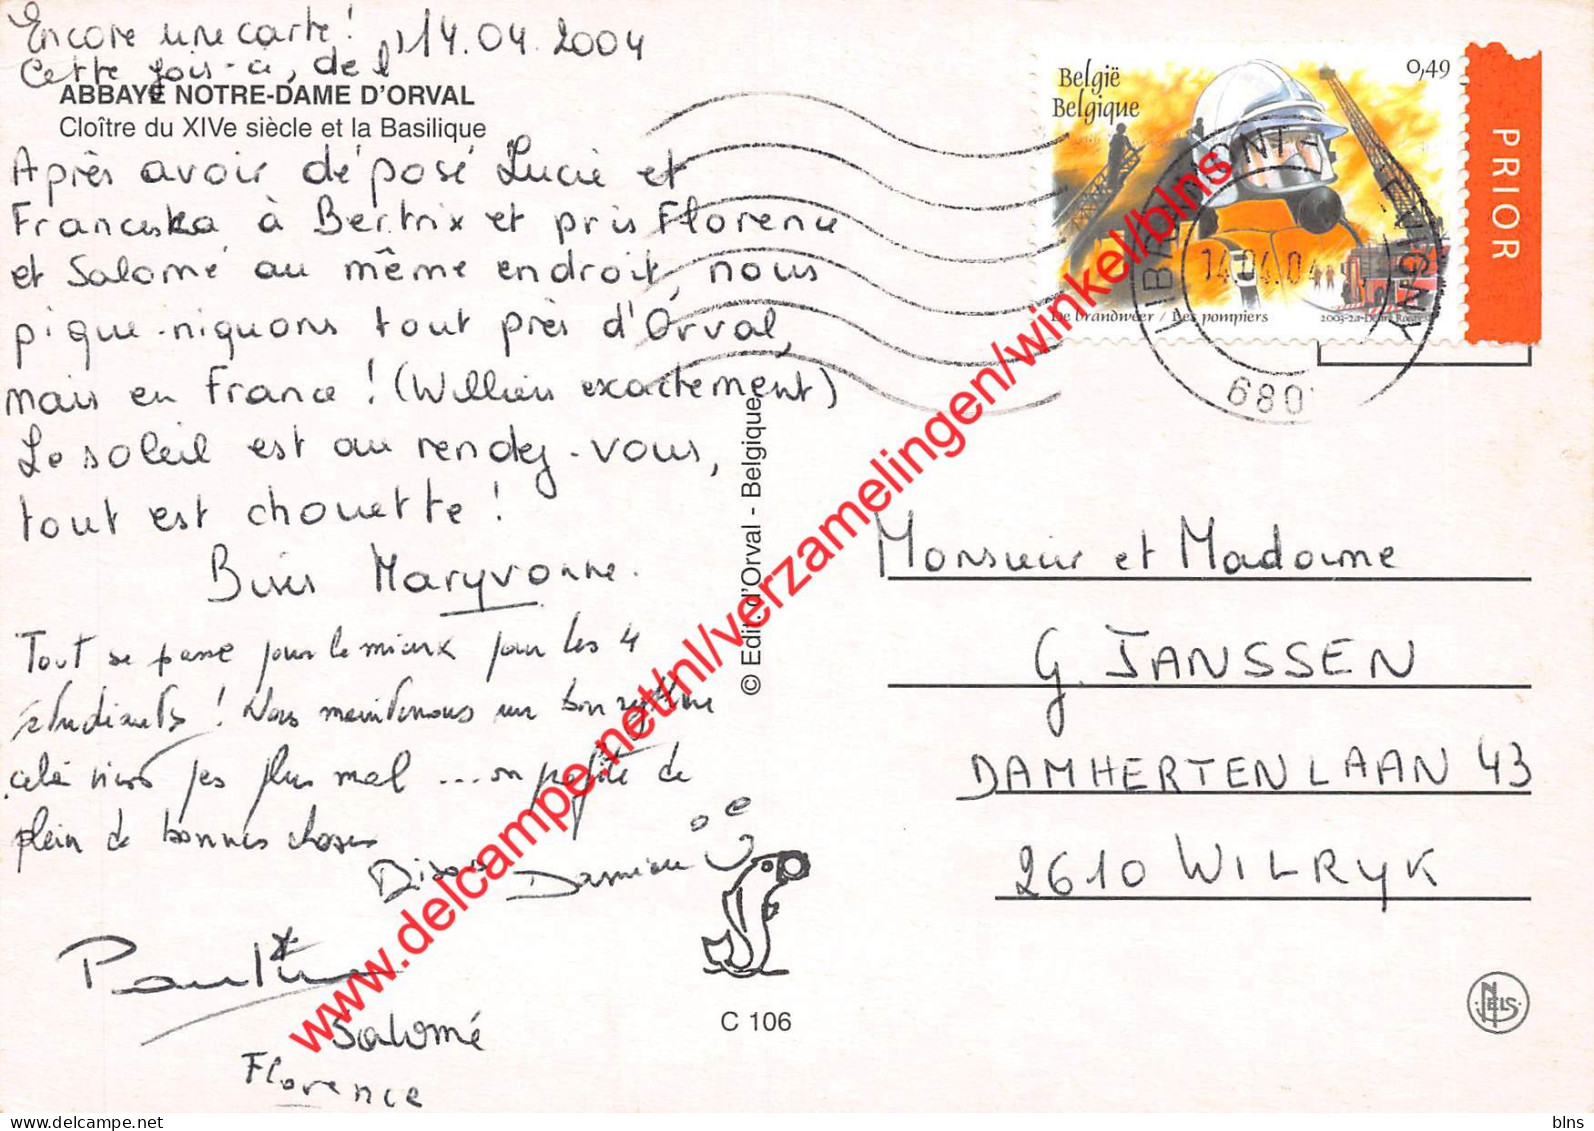 Encore une carte! 14.04.2004
Cette fois-ci, de l'
ABBAYE NOTRE-DAME D'ORVAL
Cloître du XIVe siècle et la Basilique
Après avoir déposé Lucie et
Franciska à Bertrix et pris Florence
et Salomé au même endroit, nous
pique-niquons tout près d'Orval,
mais en France! (Williers exactement)
Le soleil est au rendez-vous,
tout est chouette!
Bises Maryvonne.
Tout se passe pour le mieux pour les 4
étudiants! Nous maintenons un bon rythme
cela n'est pas plus mal ... on profite de
plein de bonnes choses
Bisous Damien
Salomé
Florence
© Edit. d'Orval - Belgique
C 106
België
Belgique
0,49
De brandweer / Les pompiers
PRIOR
14.04.04
680
Monsieur et Madame
G. JANSSEN
DAMHERTENLAAN 43
2610 WILRYK
NELS
www.delcampe.net/nl/verzamelingen/winkel/blns
blns